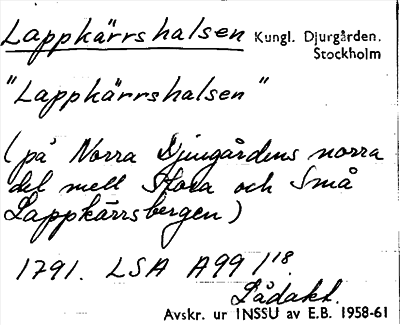 Lappkärrshalsen Kungl. Djurgården.
Stockholm
"Lappkärrshalsen"
(på Norra Djurgårdens norra
del mell Stora och Små
Lappkärrsbergen)
1791. LSA A99 1/18
Lådakt.
Avskr. ur INSSU av E.B. 1958-61